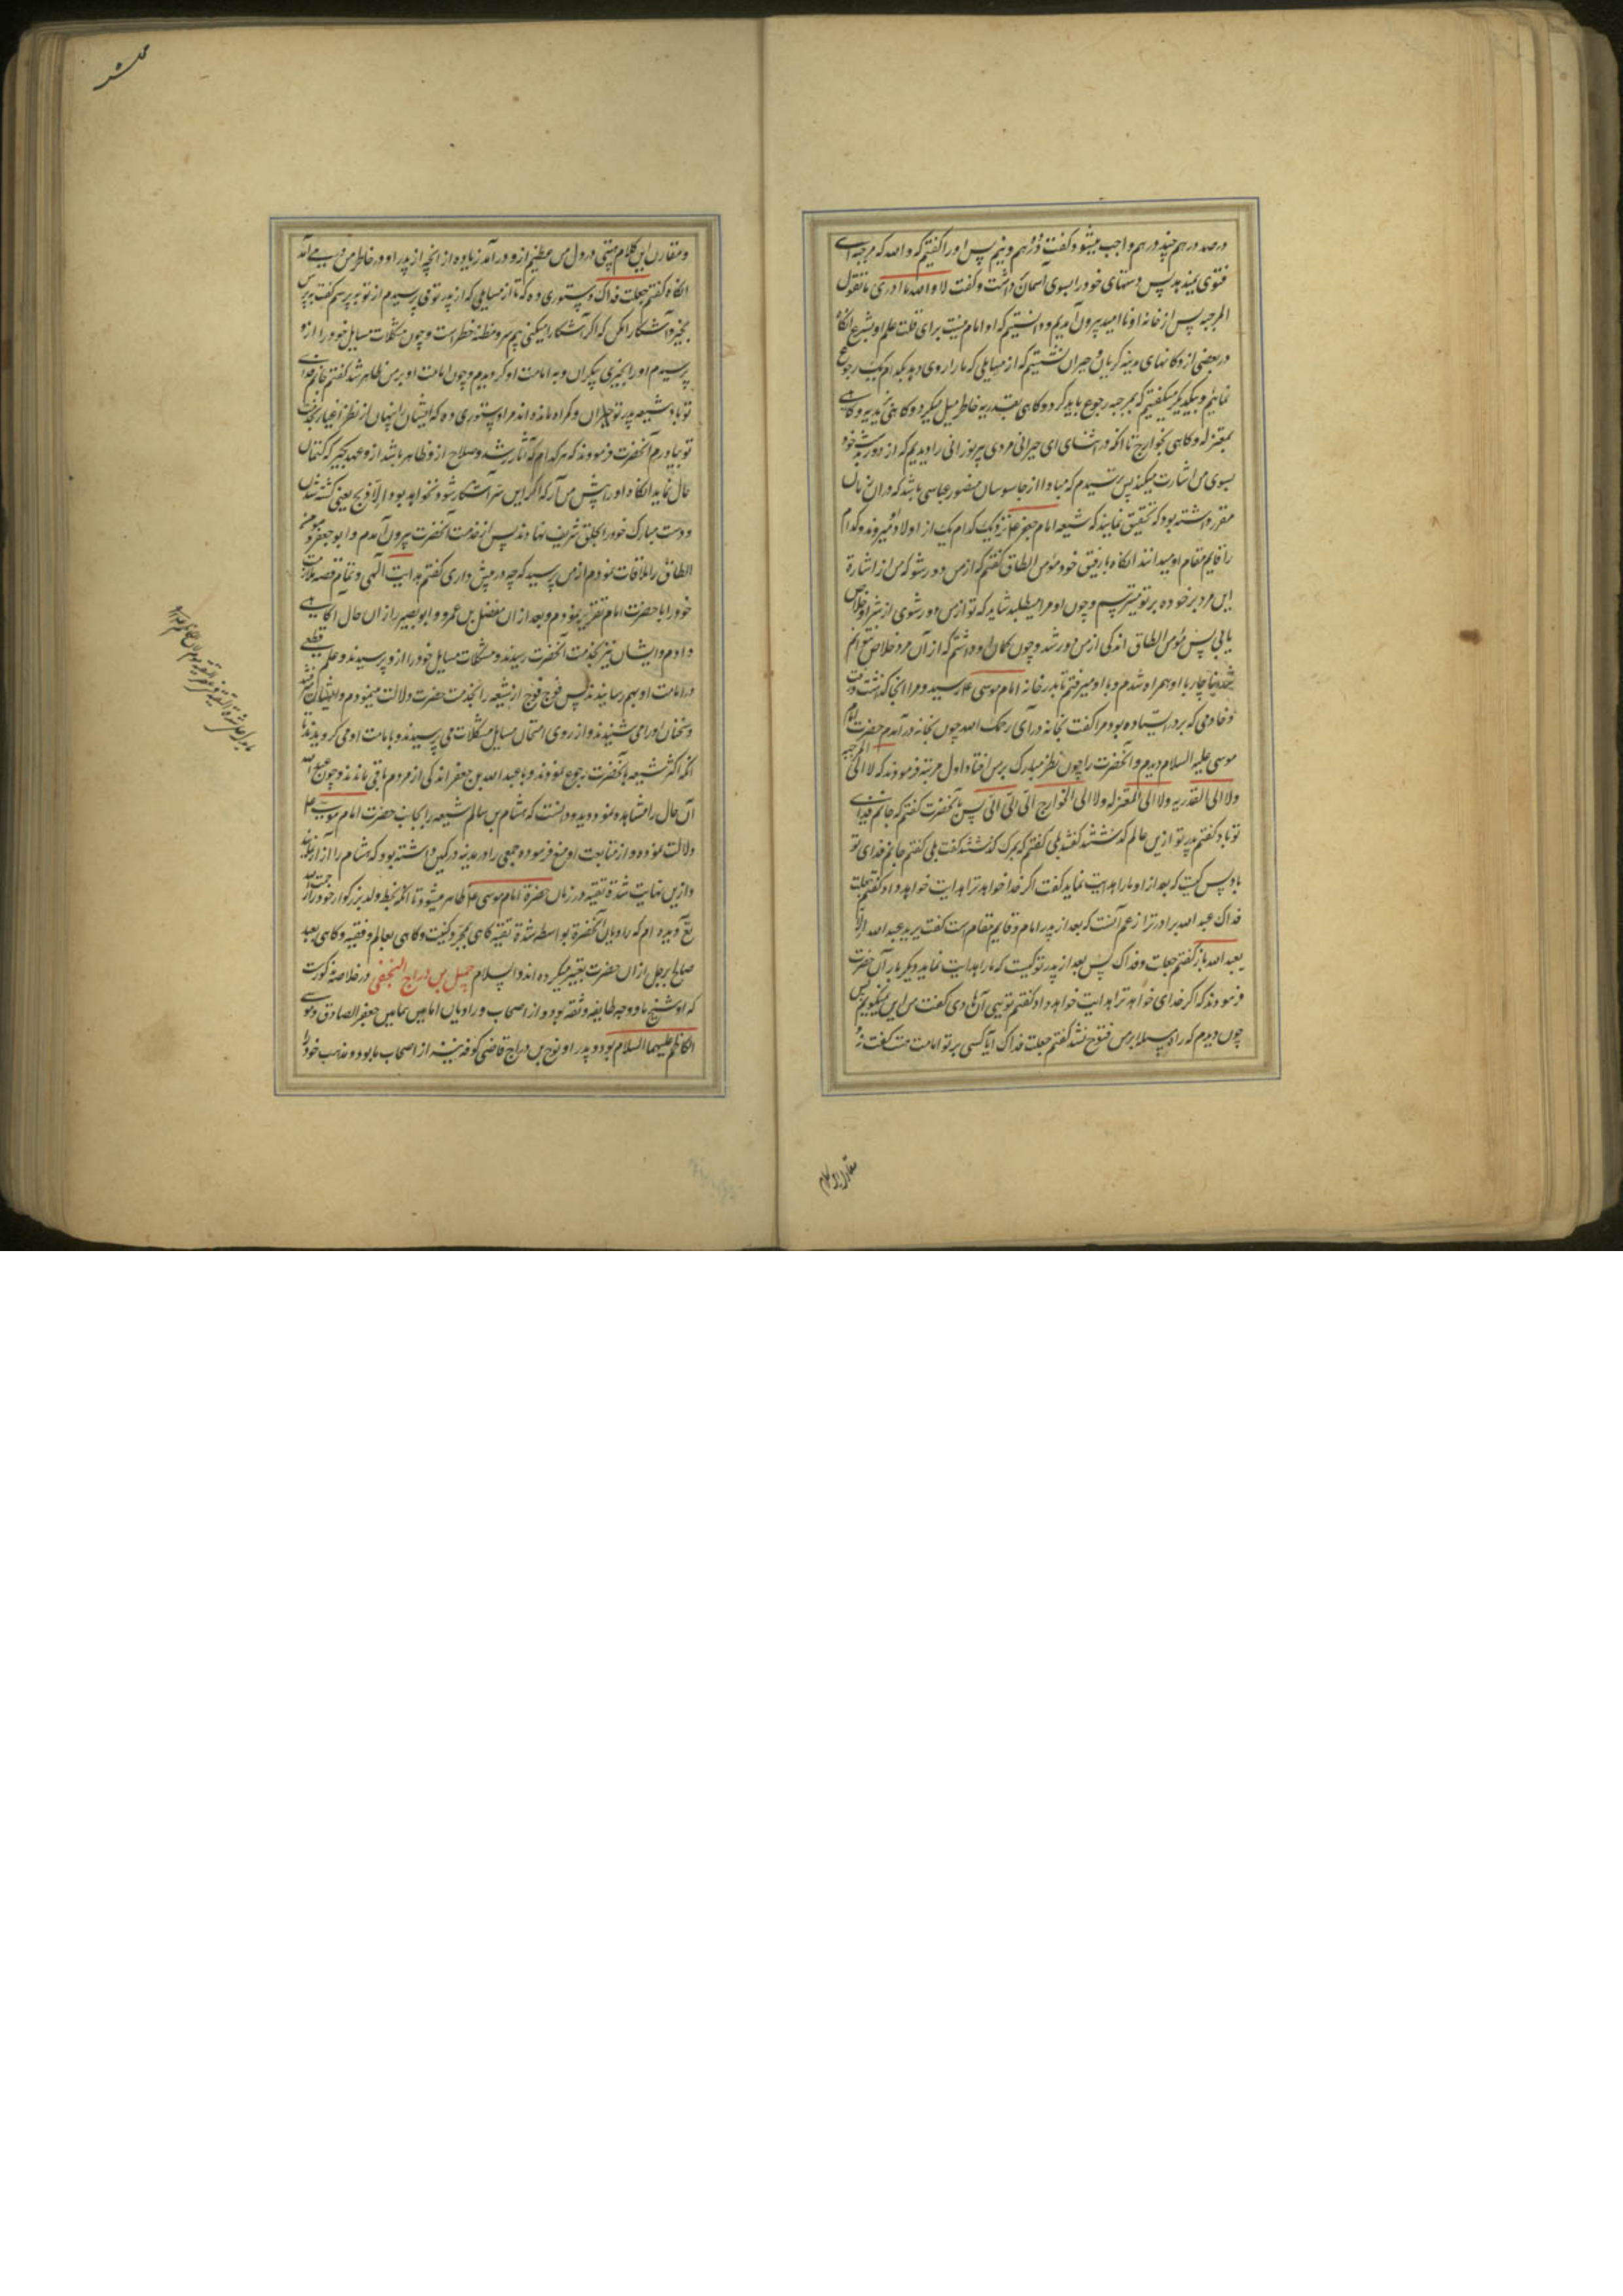 در صد درهم چند درهم واجب میشود گفت دو درهم و نیم پس او را گفتیم که والله که مرجیه
فتوی نمیدهد پس دستهای خود را بسوی آسمان داشت و گفت لا والله ما ادری ما تقول
المرجیه پس از خانه او ناامید بیرون آمدیم و دانستیم که او امام نیست برای قلت علم او بشرع آنگاه
در بعضی از دکانهای مدینه گریان و حیران نشستیم که از مسایلی که ما را روی دهد بکدام یک رجوع
نمائیم و بیکدیگر میگفتیم که بمرجیه رجوع باید کرد و گاهی بقدریه خاطر میل میکرد و گاهی بزیدیه و گاهی
بمعتزله و گاهی بخوارج تا آنکه در اثنای این حیرانی مردی پیر نورانی را دیدیم که از دور بدست خود
بسوی من اشارت میکند پس ترسیدم که مبادا از جاسوسان منصور عباسی باشد که در آن زمان
مقرر داشته بود که تحقیق نمایند که شیعه امام جعفر ع نزدیک کدام یک از اولاد او میروند و کدام
را قایم مقام او میدانند آنگاه با رفیق خود مؤمن الطاق گفتم که از من دور شو که من از اشارة
این مرد بر خود و بر تو میترسم و چون او مرا میطلبد شاید که تو از من دور شوی از شر او خلاص
یابی پس مؤمن الطاق اندکی از من دور شد و چون گمان او داشتم که از آن مرد خلاص نتوانم
شد ناچار با او همراه شدم و با او میرفتم تا بدر خانه امام موسی ع رسید و مرا آنجا گذشت و رفت
و خادمی که بر در ایستاده بود مرا گفت بخانه درآی رحمک الله چون بخانه درآمدم حضرت امام
موسی علیه السلام دیدم و آنحضرت را چون نظر مبارک بر من افتاد اول مرتبه فرمودند که لا الی المرجیه
ولا الی القدریه ولا الی المعتزله ولا الی الخوارج الیّ الیّ الیّ پس بآنحضرت گفتم که جانم فدای
تو باد گفتم پدر تو ازین عالم گذشتند گفتند بلی گفتم که بمرگ گذشتند گفت بلی گفتم جانم فدای تو
باد پس کیست که بعد از او ما را هدایت نماید گفت اگر خدا خواهد ترا هدایت خواهد داد گفتم جعلت
فداک عبد الله برادر ترا زعم آنست که بعد از پدر امام و قایم مقام است گفت یرید عبد الله ان لا
یعبد الله باز گفتم جعلت فداک پس بعد از پدر تو کیست که ما را هدایت نماید دیگر بار آن حضرت
فرمودند که اگر خدای خواهد ترا هدایت خواهد داد گفتم تویی آن هادی گفت من این نمیگویم پس
چون دیدم که راه مسئله بر من مفتوح نشد گفتم جعلت فداک آیا کسی بر تو امامت هست گفت نه
مقارن این کلام
و مقارن این کلام هیبتی در دل من عظیم از و در آمد زیاده از آنچه از پدر او در خاطر من در می آمد
آنگاه گفتم جعلت فداک دستوری ده که تا از مسایلی که از پدر تو می پرسیدم از تو بپرسم گفت بپرس
بخیر و آشکارا مکن که اگر آشکارا میکنی بیم سر و مظنه خطر است و چون مشکلات مسایل خود را از و
پرسیدم او را بحری بیکران و به امامت او گرویدم و چون امامت او بر من ظاهر شد گفتم جانم فدای
تو باد شیعه پدر تو حیران و گمراه مانده اند مرا دستوری ده که ایشان را پنهان از نظر اغیار بخدمت
تو بیاورم آنحضرت فرمودند که هر کدام که آثار رشد و صلاح از و ظاهر باشد از و عهد بگیر که کتمان
حال نماید آنگاه او را پیش من آر که اگر این سر آشکار شود نخواهد بود الا ذبح یعنی کشته شدن
و دست مبارک خود را بحلق شریف نهادند پس از خدمت آنحضرت بیرون آمدم و ابو جعفر مؤمن
الطاق را ملاقات نمودم از من پرسید که چه در پیش داری گفتم هدایت الهی و تمام قصه ملازمت
خود را با حضرت امام تقریر نمودم و بعد از آن مفضل بن عمرو و ابو بصیر را از آن حال آگاهی
دادم و ایشان نیز بخدمت آنحضرت رسیدند و مشکلات مسایل خود را از و پرسیدند و علم قطعی
در امامت او بهم رسانیدند پس فوج فوج از شیعه را بخدمت حضرت دلالت مینمودم و ایشان
و سخنان او را می شنیدند و از روی امتحان مسایل مشکلات می پرسیدند و بامامت او می گرویدند تا
آنکه اکثر شیعه بآنحضرت رجوع نمودند و با عبد الله بن جعفر اندکی از مردم باقی ماندند و چون عبد الله
آن حال را مشاهده نمود دید و دانست که هشام بن سالم شیعه را بجانب حضرت امام موسی ع
دلالت نموده و از متابعت او منع فرموده جمعی را در مدینه در کمین داشته بود که هشام را آزار رسانند
و ازین نهایت شدة تقیه در زمان حضرة امام موسی ع ظاهر میشود تا آنکه بخط والد بزرگوار خود
دیده ام که راویان آنحضرة بواسطه شدة تقیه گاهی بمجرد کنیت و گاهی بعالم و فقیه و گاهی بعبد
صالح برجل از آن حضرت تعبیر میکرده اند والسلام جمیل بن دراج النخعی در خلاصه مذکورست
که او شیخ ما و وجه طایفه و ثقه بود و از اصحاب و راویان امامین همامین جعفر الصادق و موسی
الکاظم علیهما السلام بود و پدر او نوح بن دراج قاضی کوفه نیز از اصحاب ما بود و مذهب خود را